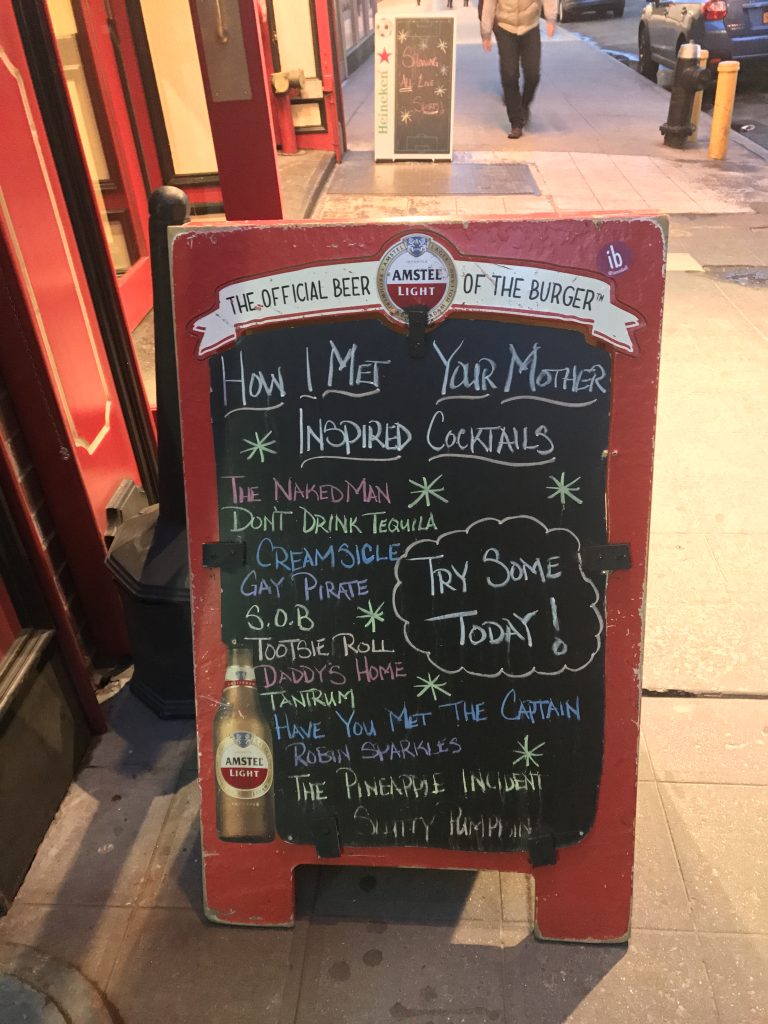 Heineken
Showing
All Live
Sports!
ib
THE OFFICIAL BEER OF THE BURGER™
AMSTEL
LIGHT
How I Met Your Mother
Inspired Cocktails
The Naked Man
Don't Drink Tequila
Creamsicle
Gay Pirate
S.O.B
Tootsie Roll
Daddy's Home
Tantrum
Have You Met The Captain
Robin Sparkles
The Pineapple Incident
Slutty Pumpkin
Try Some
Today!
AMSTEL
LIGHT